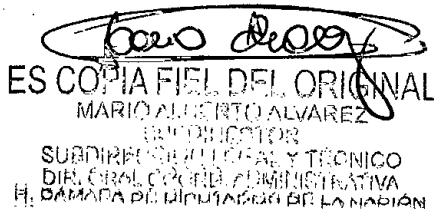 ES COPIA FIEL DEL ORIGINAL
MARIO ALBERTO ALVAREZ
SUBDIRECTOR
SUBDIRECCION LEGAL Y TECNICO
DIR. GRAL. COORD. ADMINISTRATIVA
H. CAMARA DE DIPUTADOS DE LA NACION